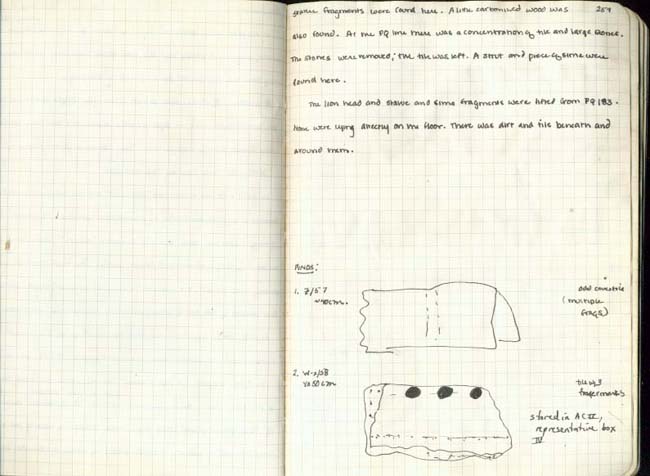 statue fragments were found here. A little carbonized wood was
257
also found. At the PQ line there was a concentration of tile and large stones.
The stones were removed; the tile was left. A strut and piece of sime were
found here.
The lion head and statue and sime fragments were lifted from PQ 183.
None were lying directly on the floor. There was dirt and tile beneath and
around them.
FINDS:
1. Z/57
~40cm.
odd covertile
(multiple
frags)
2. W-z/58
~50cm
tile w/3
fingermarks
stored in AC II,
representative box
IV